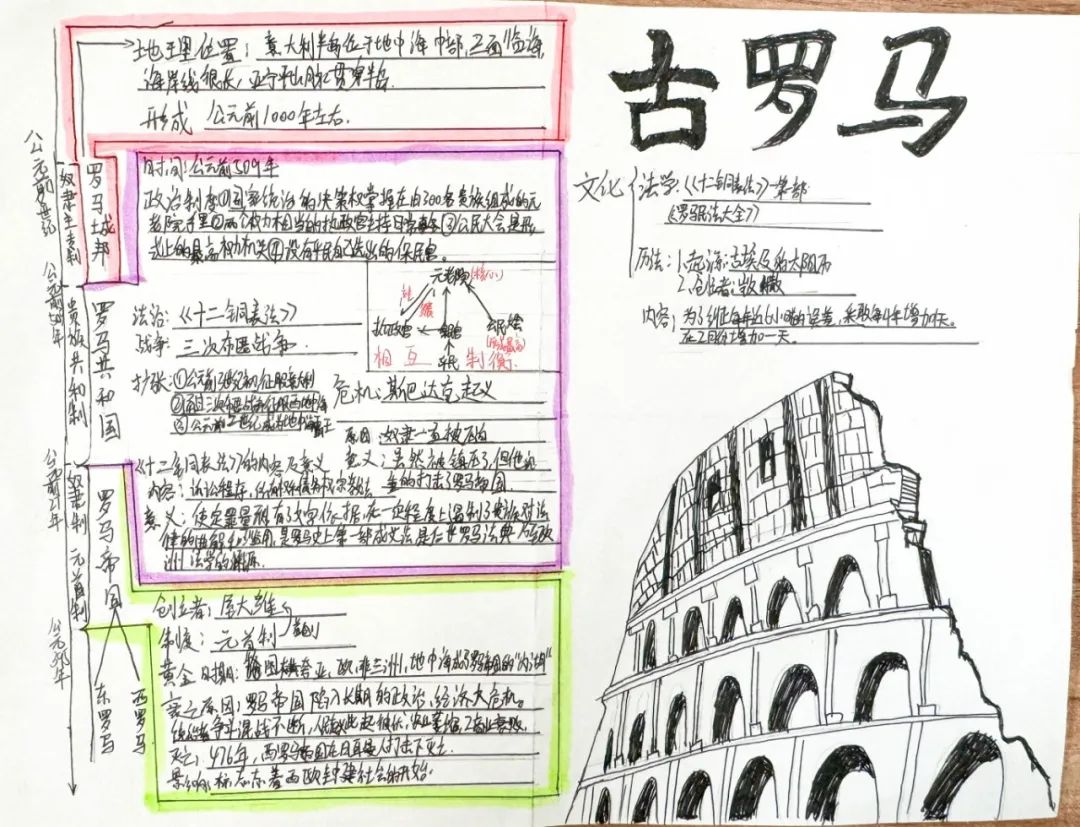 古罗马
地理位置：意大利半岛位于地中海中部，三面临海，
海岸线很长，亚平宁山脉贯穿半岛.
形成 公元前1000年左右.
时间：公元前509年
政治制度①国家统治的决策权掌握在由300名贵族组成的元
老院手里②两个权力相当的执政官主持日常事务③公民大会是形
式上的最高权力机关④设有平民自己选出的保民官.
法治：《十二铜表法》
战争：三次布匿战争
元老院(核心)
执政官
平民
相互制衡.
扩张：①公元前3世纪初征服意大利
危机：斯巴达克起义
原因：奴隶一直被压迫
意义：虽然被镇压了，但他沉
重的打击了罗马帝国.
《十二铜表法》的内容及意义
内容：诉讼程序，
意义：使定罪量刑有了文字依据在一定程度上遏制了贵族对法
律的曲解和滥用，是罗马史上第一部成文法是后世罗马法典乃至欧
洲法学的渊源.
创立者：屋大维
制度：元首制
黄金时期：版图横跨亚，欧，非三洲，地中海成了罗马帝国的“内湖”
衰亡原因：罗马帝国陷入长期的政治、经济大危机。
统治者争斗混战不断，
灭亡：476年，西罗马帝国在日耳曼人打击下灭亡.
影响：标志着西欧封建社会的开始.
公元前8世纪
奴隶主专制
罗马城邦
贵族共和制
罗马共和国
奴隶制
元首制
罗马帝国
东罗马
西罗马
文化
法学：《十二铜表法》-第一部
《罗马民法大全》
历法：1.起源：古埃及的太阳历
2.创立者：凯撒
内容：为了纠正每年当6小时的误差，采取每4年增加1天。
在2月份增加一天。